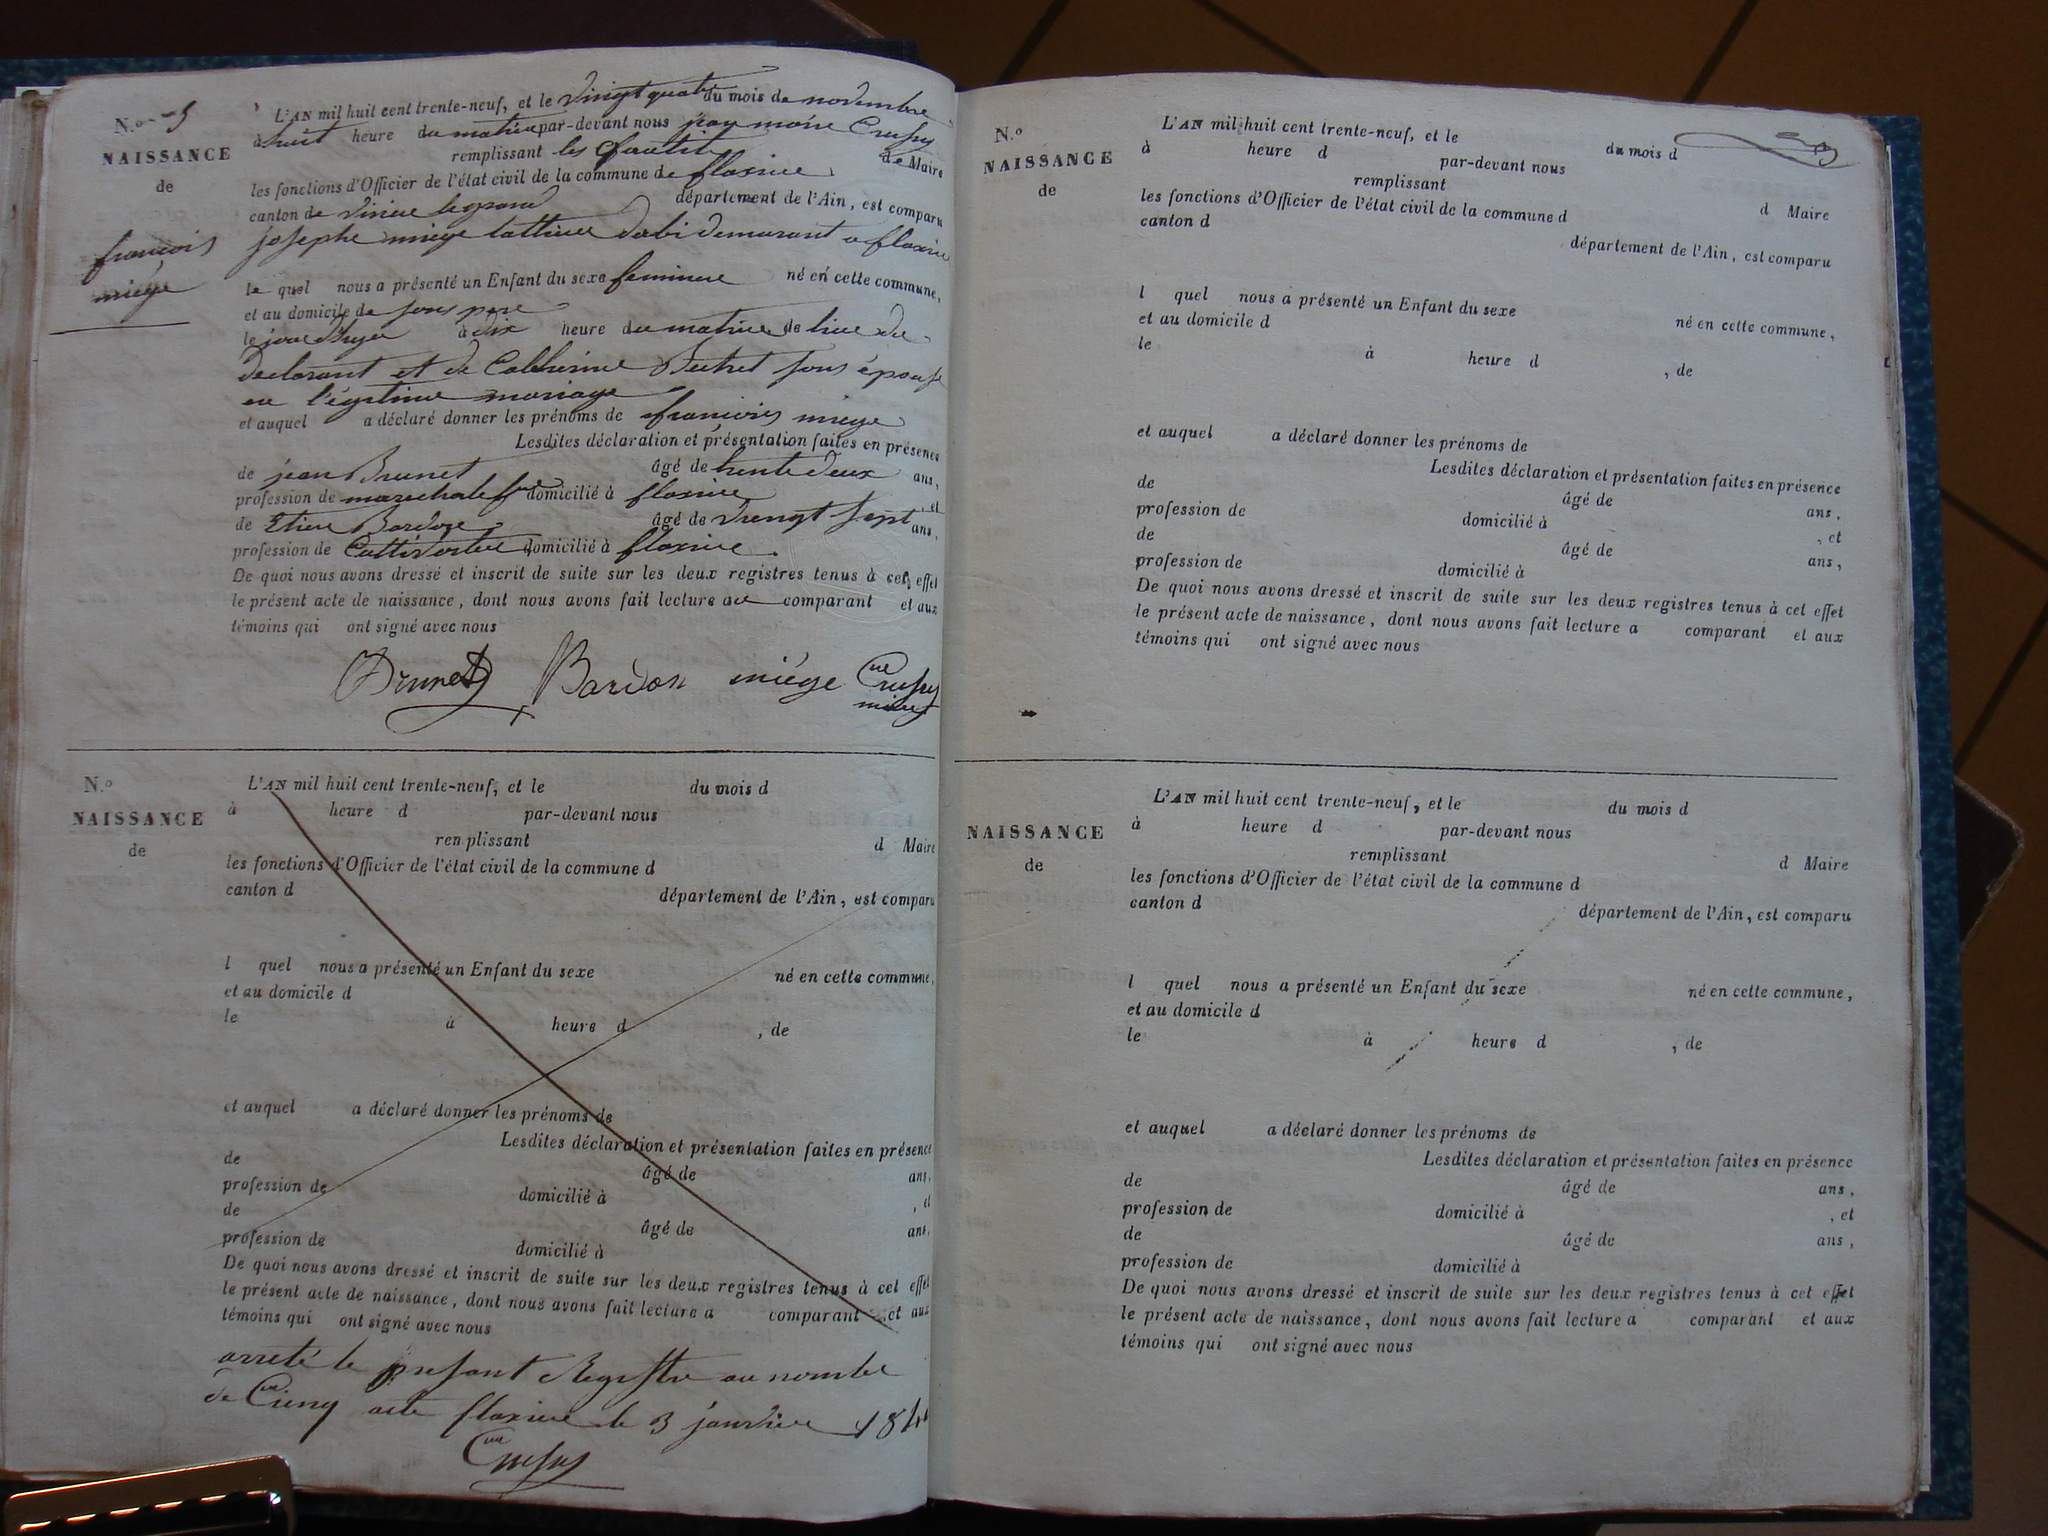 N.o 5
NAISSANCE
de
françois
miége
L'AN mil huit cent trente-neuf, et le vingt quatre du mois de novembre
à huit heure du matin par-devant nous jean marie
remplissant les de Maire
les fonctions d'Officier de l'état civil de la commune de flaxieu
canton de virieu legrand département de l'Ain, est comparu
josephe miege demurant a flaxieu
le quel nous a présenté un Enfant du sexe feminin né en cette commune,
et au domicile de sons pere
le jour à dix heure du matin de
declarant et de Catherine sons épouse
en l'égitime mariage
et auquel a déclaré donner les prénoms de françois miege
Lesdites déclaration et présentation faites en présence
de jean Brunet âgé de trente deux ans,
profession de domicilié à flaxieu , et
de âgé de vingt sept ans,
profession de Cultivateur domicilié à flaxieu.
De quoi nous avons dressé et inscrit de suite sur les deux registres tenus à cet effet
le présent acte de naissance, dont nous avons fait lecture au comparant et aux
témoins qui ont signé avec nous
Brunet Bardon miége
maire
N.o
NAISSANCE
de
L'AN mil huit cent trente-neuf, et le du mois d
à heure d par-devant nous
remplissant d Maire
les fonctions d'Officier de l'état civil de la commune d
canton d département de l'Ain, est comparu
l quel nous a présenté un Enfant du sexe né en cette commune,
et au domicile d
le à heure d , de
et auquel a déclaré donner les prénoms de
Lesdites déclaration et présentation faites en présence
de âgé de ans,
profession de domicilié à , et
de âgé de ans,
profession de domicilié à
De quoi nous avons dressé et inscrit de suite sur les deux registres tenus à cet effet
le présent acte de naissance, dont nous avons fait lecture a comparant et aux
témoins qui ont signé avec nous
arreté le presant Registre au nombre
de Cinq acte flaxieu le 3 janvier
N.o
NAISSANCE
de
L'AN mil huit cent trente-neuf, et le du mois d
à heure d par-devant nous
remplissant d Maire
les fonctions d'Officier de l'état civil de la commune d
canton d département de l'Ain, est comparu
l quel nous a présenté un Enfant du sexe né en cette commune,
et au domicile d
le à heure d , de
et auquel a déclaré donner les prénoms de
Lesdites déclaration et présentation faites en présence
de âgé de ans,
profession de domicilié à , et
de âgé de ans,
profession de domicilié à
De quoi nous avons dressé et inscrit de suite sur les deux registres tenus à cet effet
le présent acte de naissance, dont nous avons fait lecture a comparant et aux
témoins qui ont signé avec nous
NAISSANCE
de
L'AN mil huit cent trente-neuf, et le du mois d
à heure d par-devant nous
remplissant d Maire
les fonctions d'Officier de l'état civil de la commune d
canton d département de l'Ain, est comparu
l quel nous a présenté un Enfant du sexe né en cette commune,
et au domicile d
le à heure d , de
et auquel a déclaré donner les prénoms de
Lesdites déclaration et présentation faites en présence
de âgé de ans,
profession de domicilié à , et
de âgé de ans,
profession de domicilié à
De quoi nous avons dressé et inscrit de suite sur les deux registres tenus à cet effet
le présent acte de naissance, dont nous avons fait lecture a comparant et aux
témoins qui ont signé avec nous